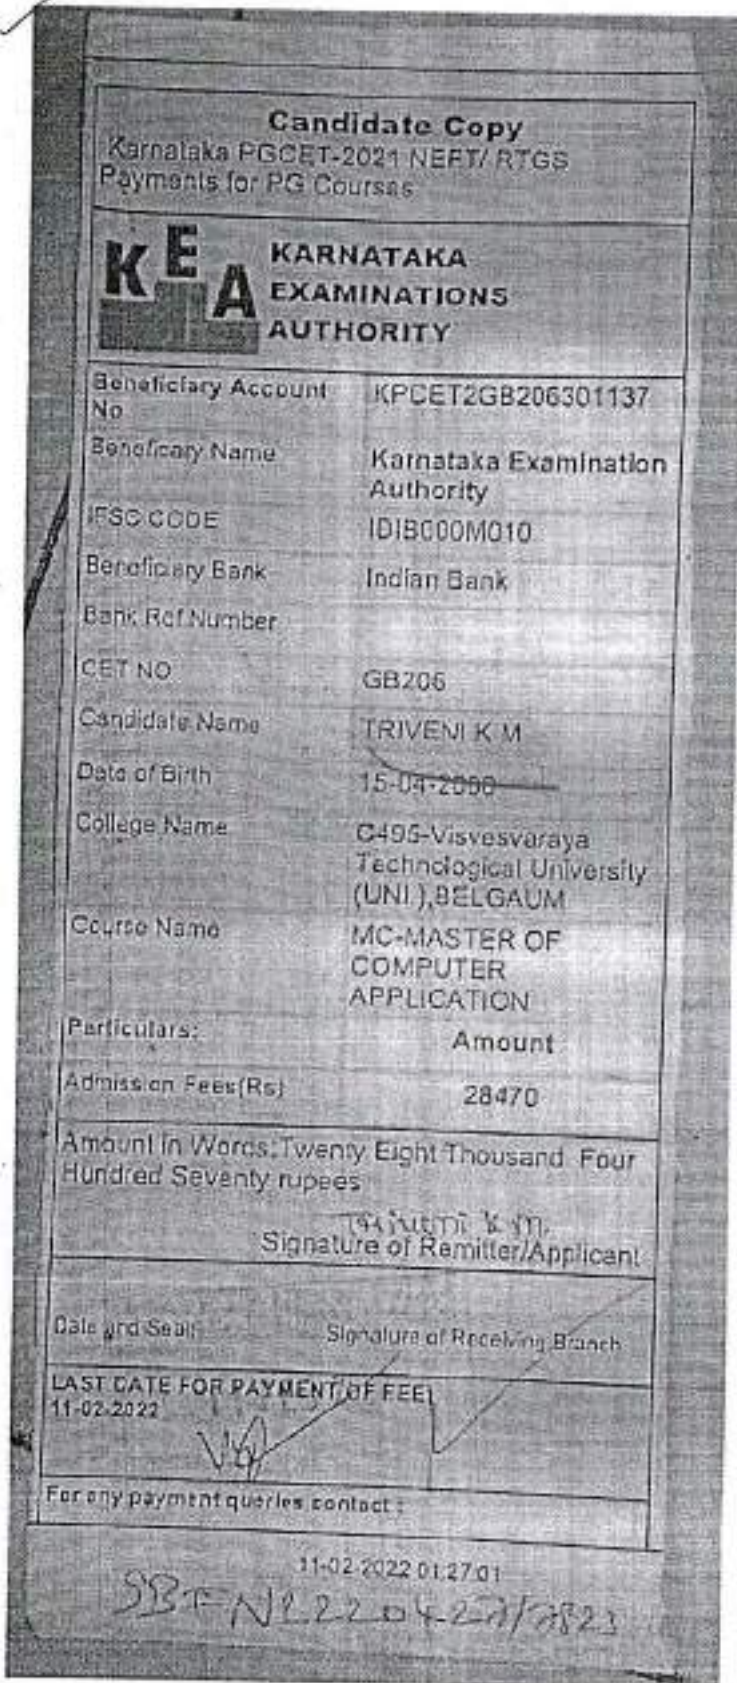 Candidate Copy
Karnataka PGCET-2021 NEFT/ RTGS
Payments for PG Courses
KEA
KARNATAKA
EXAMINATIONS
AUTHORITY
Beneficiary Account No KPCET2GB206301137
Beneficary Name Karnataka Examination
Authority
IFSC CODE IDIB000M010
Beneficiary Bank Indian Bank
Bank Ref Number
CET NO GB206
Candidate Name TRIVENI K M
Date of Birth 15-04-2000
College Name C495-Visvesvaraya
Technological University
(UNI ),BELGAUM
Course Name MC-MASTER OF
COMPUTER
APPLICATION
Particulars: Amount
Admission Fees(Rs) 28470
Amount in Words:Twenty Eight Thousand Four
Hundred Seventy rupees
Triveni K M
Signature of Remitter/Applicant
Date and Seal: Signature of Receiving Branch
LAST DATE FOR PAYMENT OF FEE
11-02-2022
For any payment queries contact :
11-02-2022 01:27:01